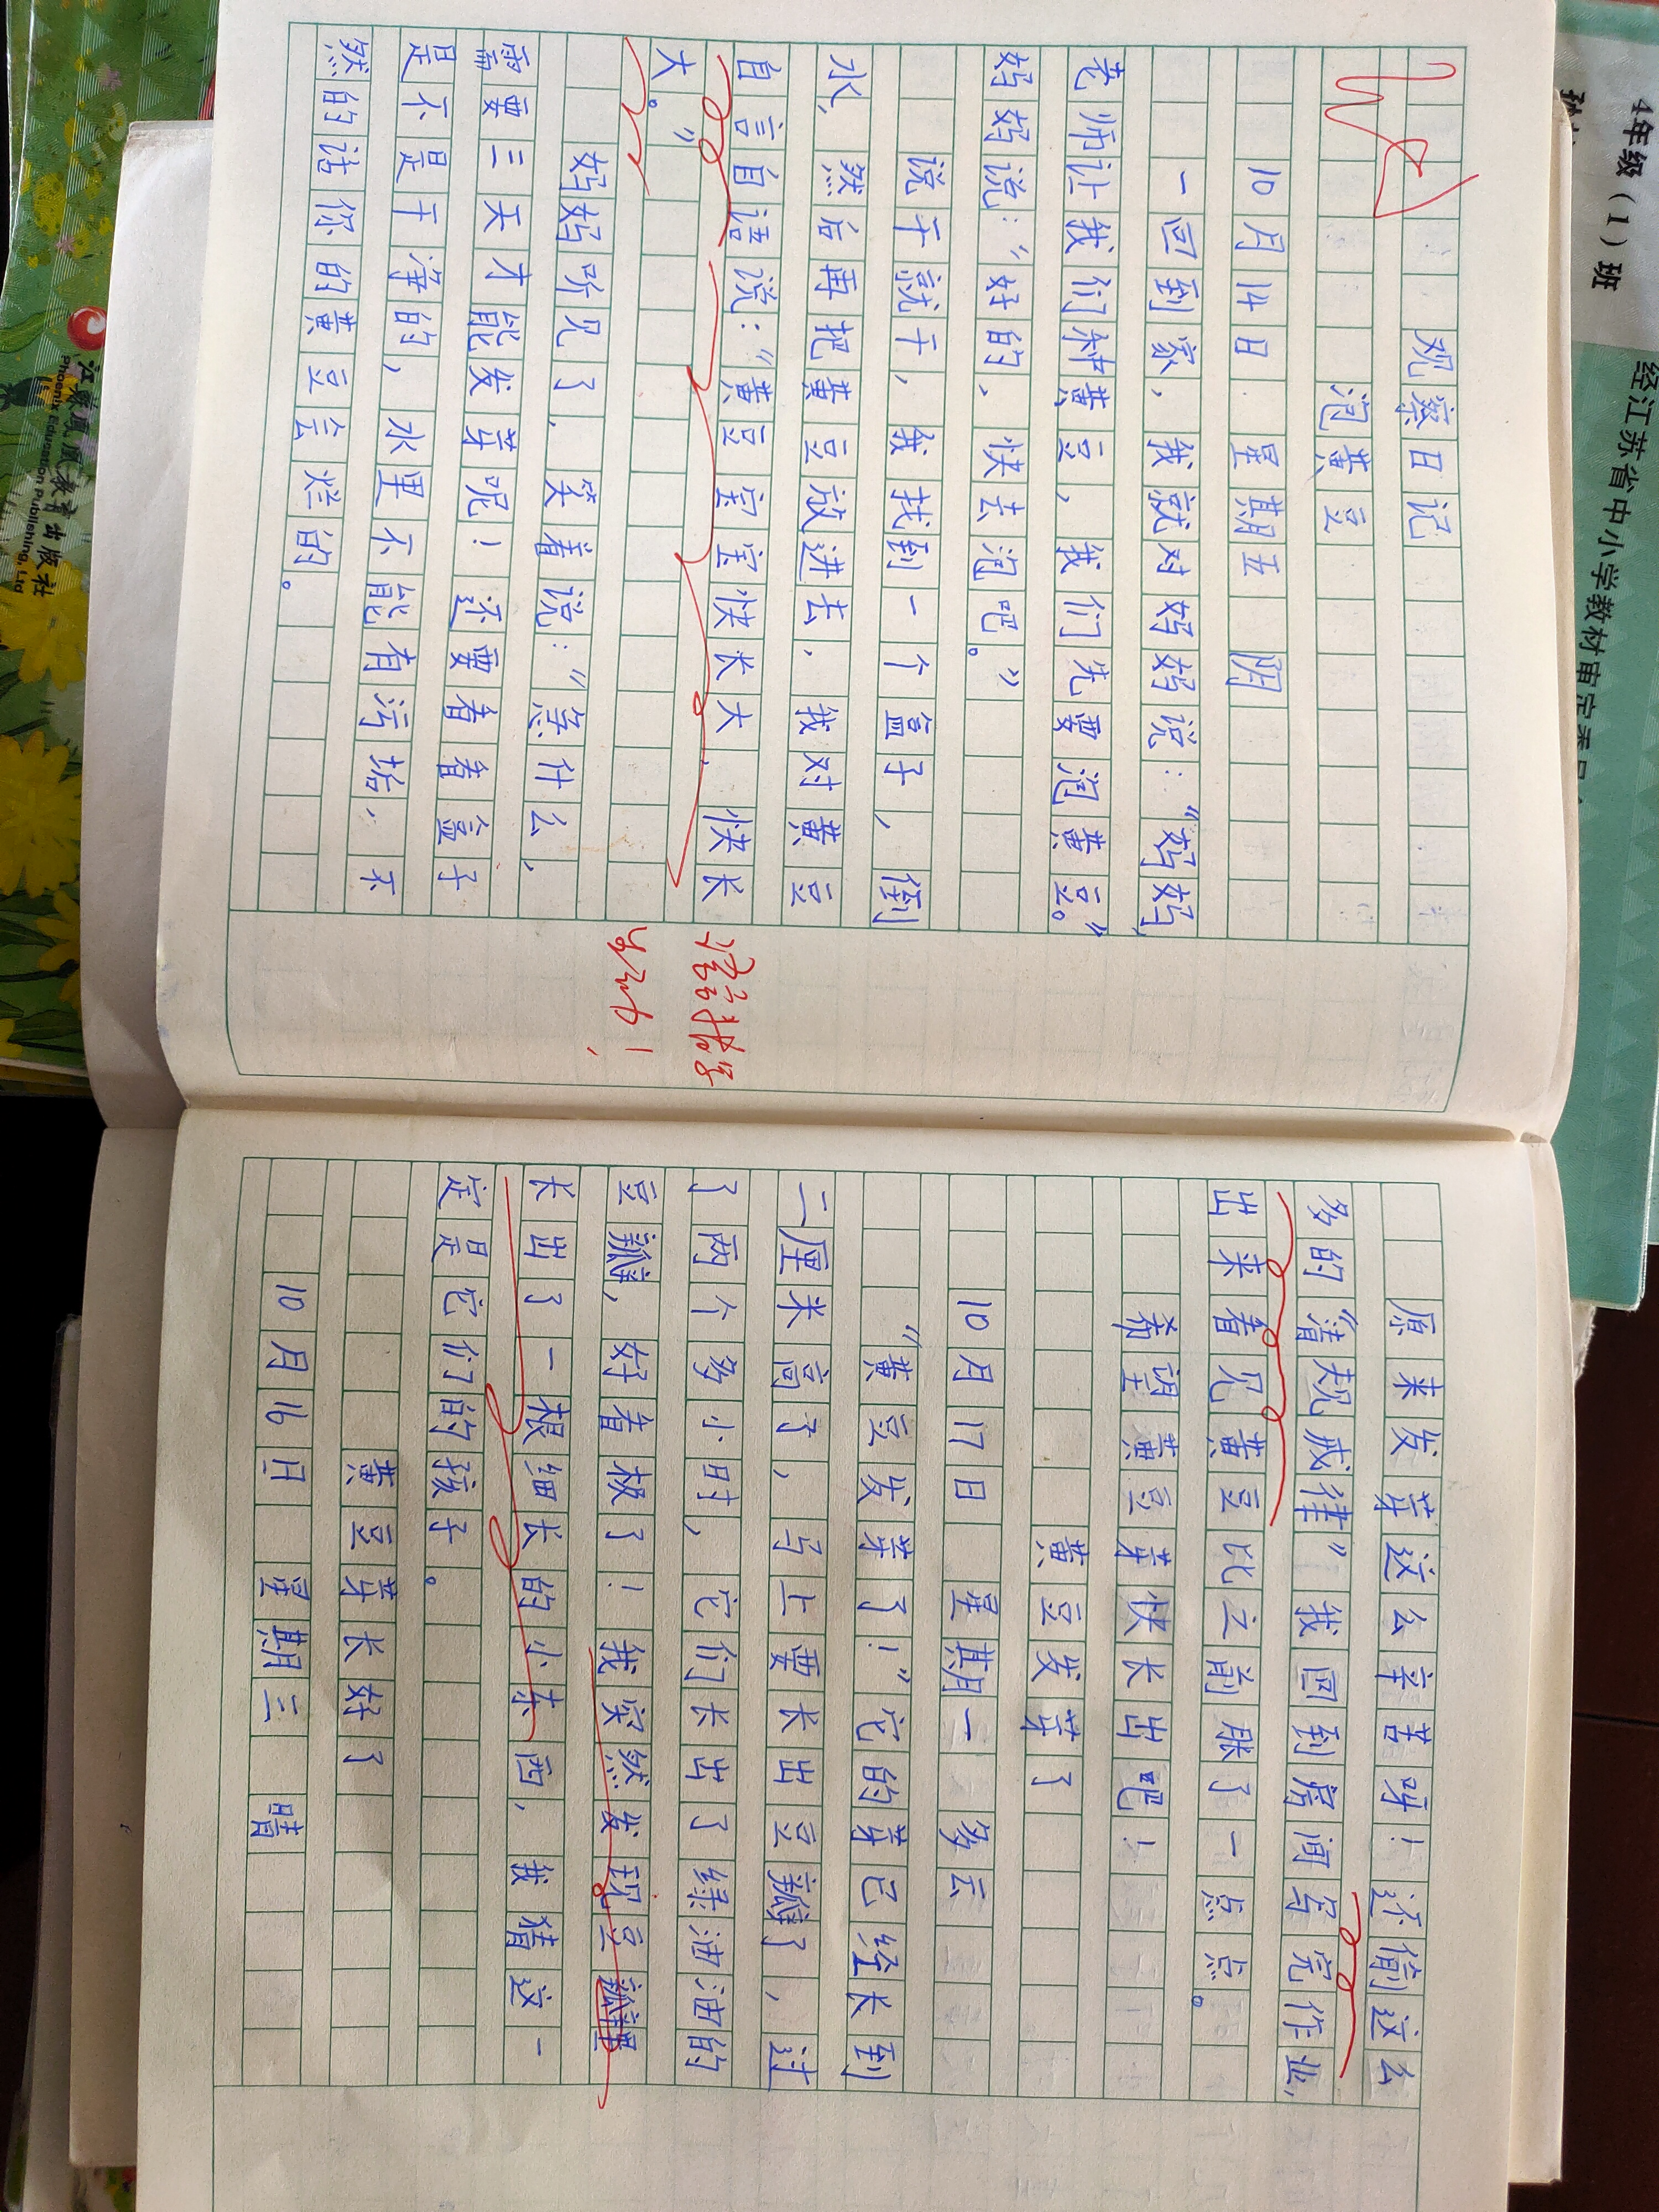 观察日记
泡黄豆
10月14日 星期五 阴
一回到家，我就对妈妈说：“妈妈，
老师让我们种黄豆，我们先要泡黄豆。”
妈妈说：“好的，快去泡吧。”
说干就干，我找到一个盒子，倒
水，然后再把黄豆放进去，我对黄豆
自言自语说：“黄豆宝宝快长大，快长
大。”
妈妈听见了，笑着说：“急什么，
需要三天才能发芽呢！还要看看盒子
是不是干净的，水里不能有污垢，不
然的话你的黄豆会烂的。
语言描写
生动！
原来发芽这么辛苦呀！还有这么
多的“清规戒律”我回到房间写完作业，
出来看见黄豆比之前胀了一点点。
希望黄豆芽快长出吧！
黄豆发芽了
10月17日 星期一 多云
“黄豆发芽了！”它的芽已经长到
二厘米高了，马上要长出豆瓣了，过
了两个多小时，它们长出了绿油油的
豆瓣，好看极了！我突然发现豆瓣里
长出了一根细长的小东西，我猜这一
定是它们的孩子。
黄豆芽长好了
10月16日 星期三 晴
4年级（1）班
经江苏省中小学教材审定委员
江苏凤凰教育出版社
Phoenix Education Publishing, Ltd